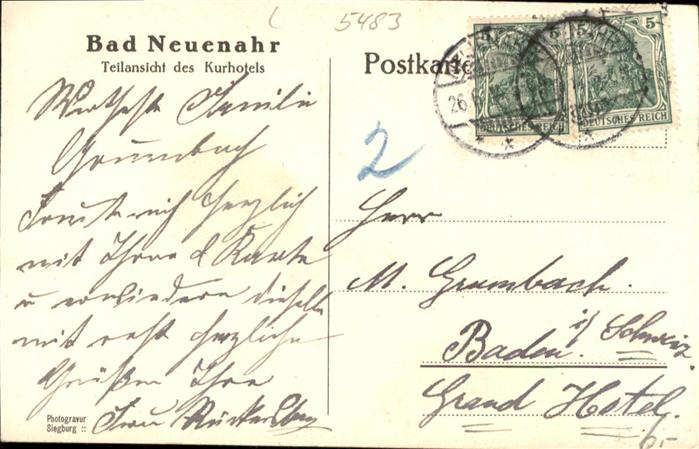 5483
Bad Neuenahr
Teilansicht des Kurhotels
Postkarte
5 5
DEUTSCHES REICH
DEUTSCHES REICH
26
2
Werthe Familie
Grumbach
mich herzlich
mit Ihrer l. Karte
u. erwiedere dieselbe
mit recht herzlichen
Grüßen Ihre
Frau
Photogravur
Siegburg ::
Herr
M. Grumbach.
Baden. i/ Schweiz.
Grand Hotel.